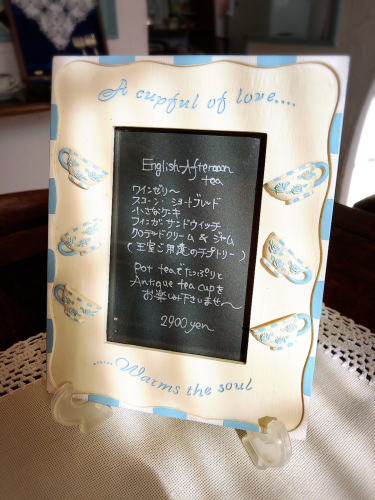 A cupful of love....
English Afternoon
tea
ワインゼリー
スコーン・ショートブレード
小さなケキ
フィンガーサンドウィッチ
クロテッドクリーム & ジャム
(王室ご用達のチプトリー)
Pot teaでたっぷりと
Antique tea cupを
お楽しみ下さいませ〜
2900yen
.....Warms the soul